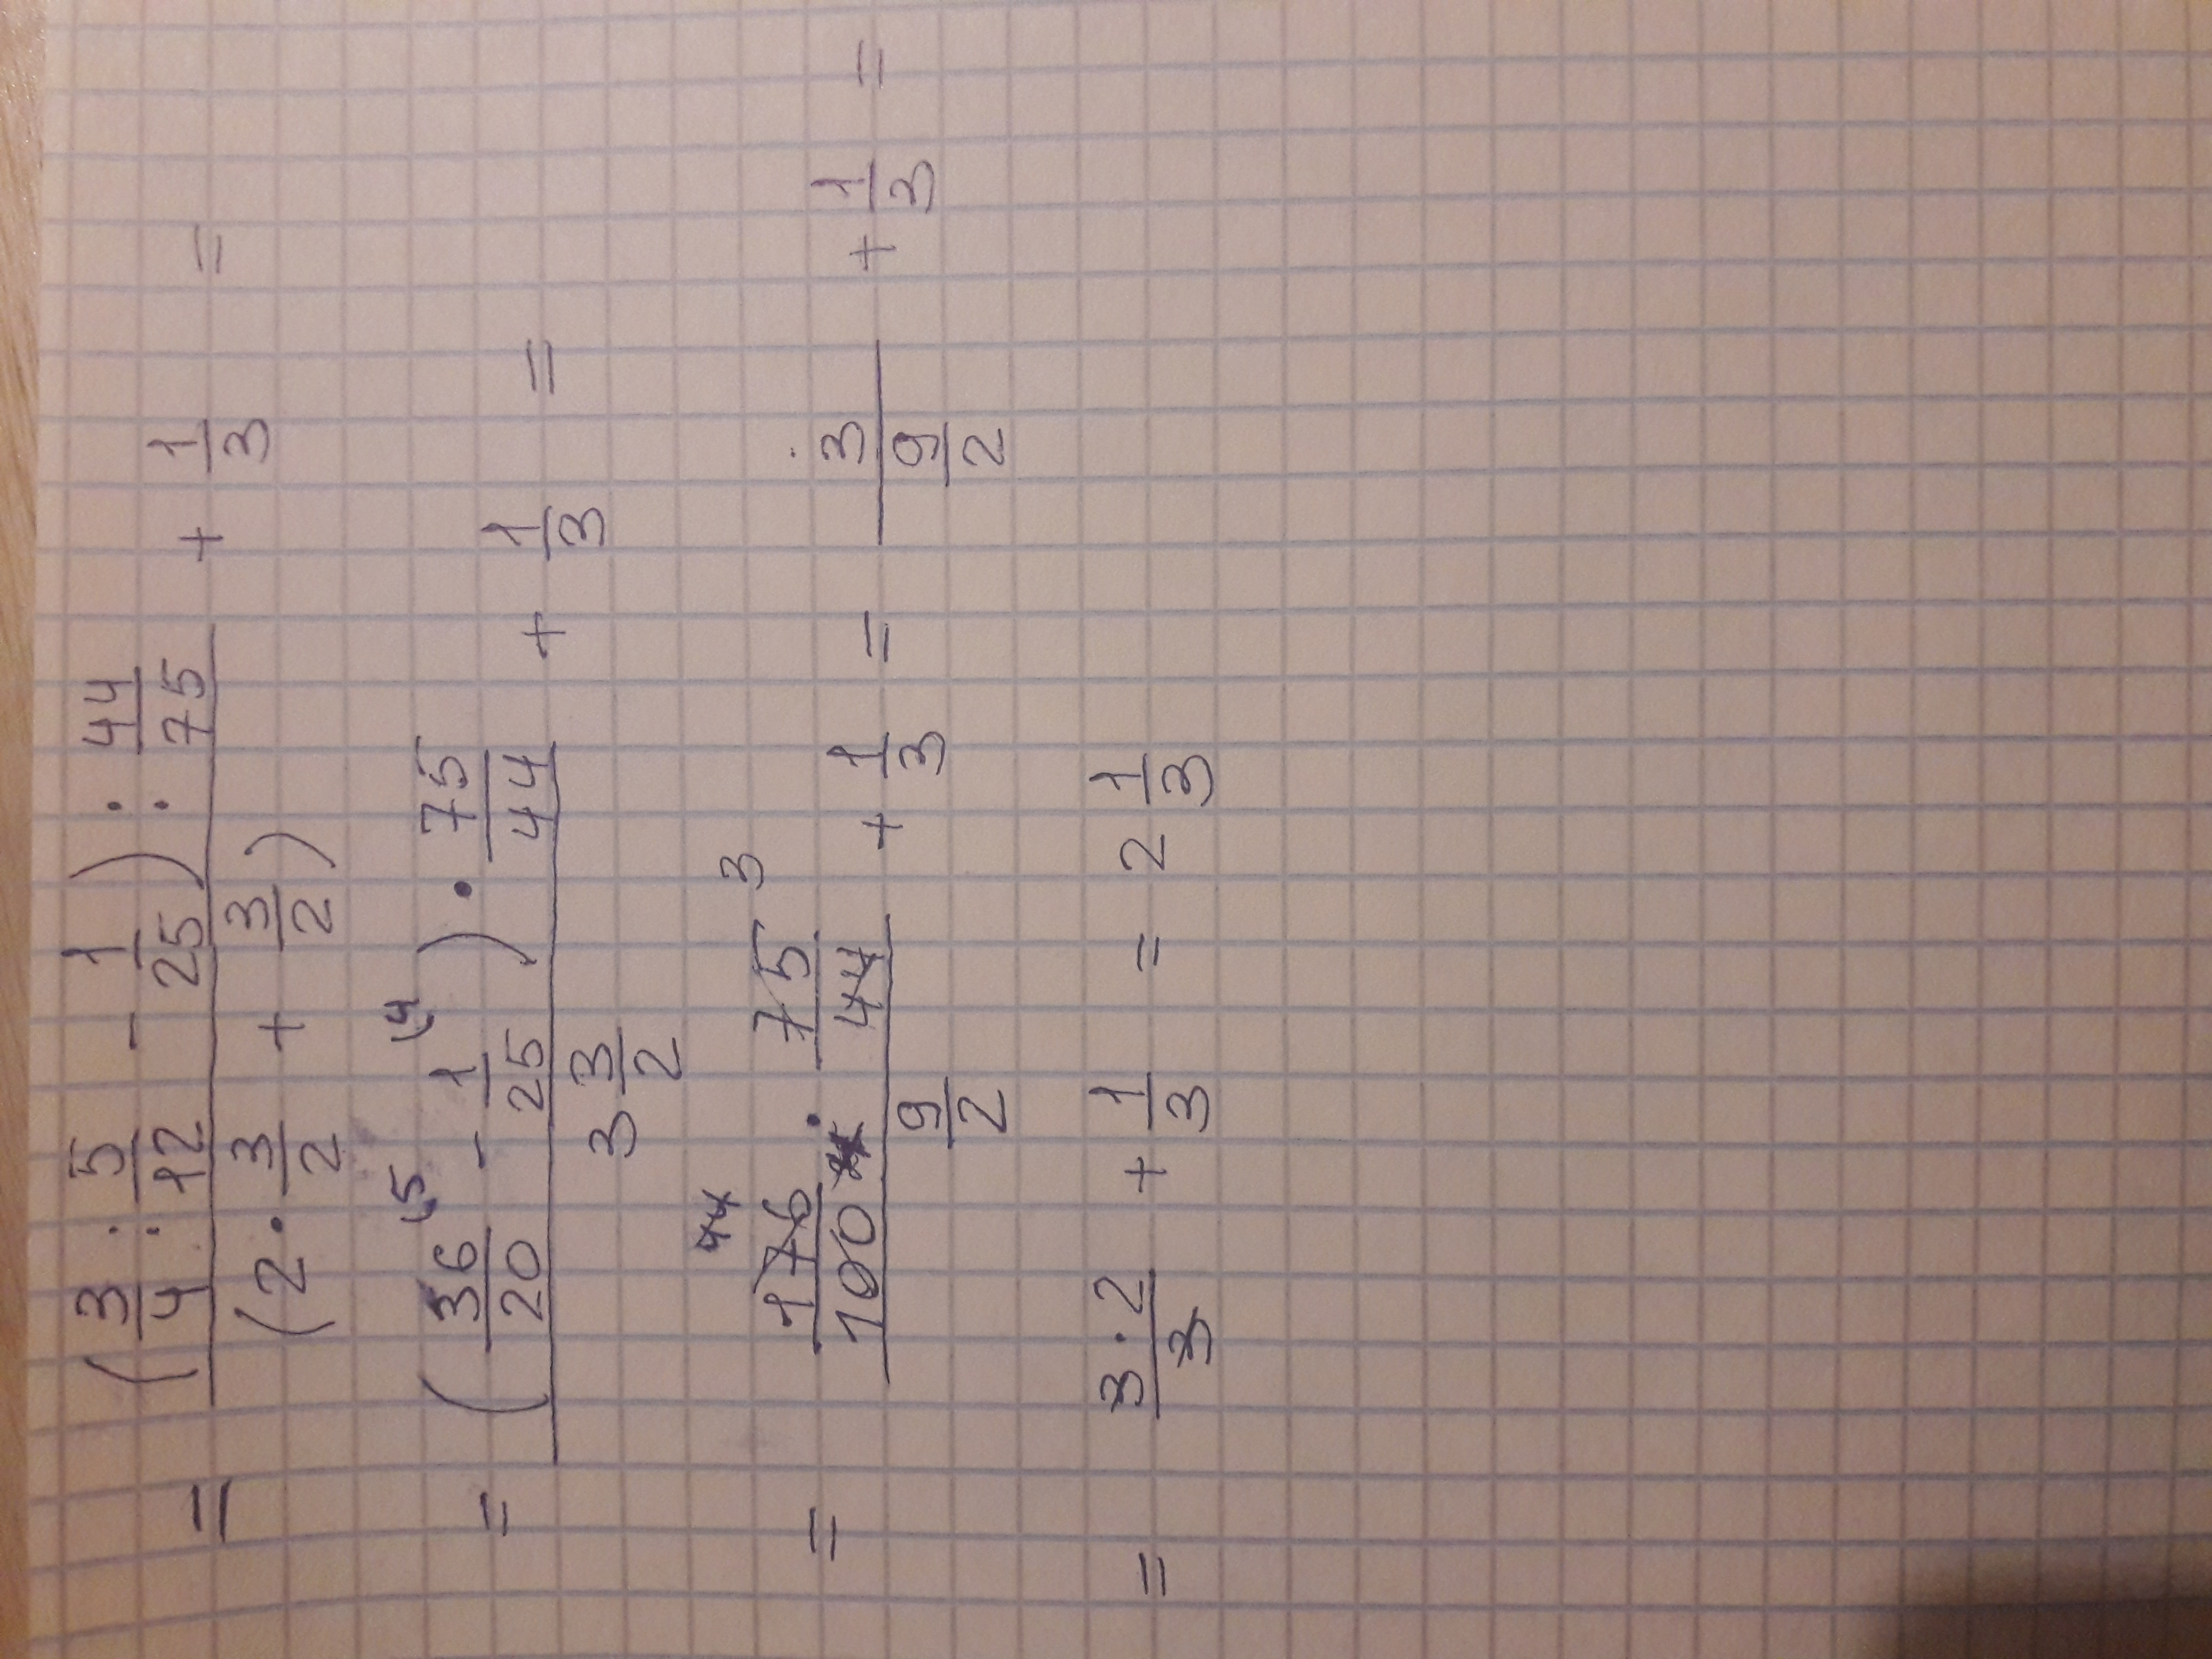 = ((3/4 : 5/12 - 1/25) : 44/75) / (2 · 3/2 + 3/2) + 1/3 =
= ((36/20 (5 - 1/25 (4) · 75/44) / (3 3/2) + 1/3 =
= (176/100 · 75/44) / (9/2) + 1/3 = 3 / (9/2) + 1/3 =
= 3·2/3 + 1/3 = 2 1/3